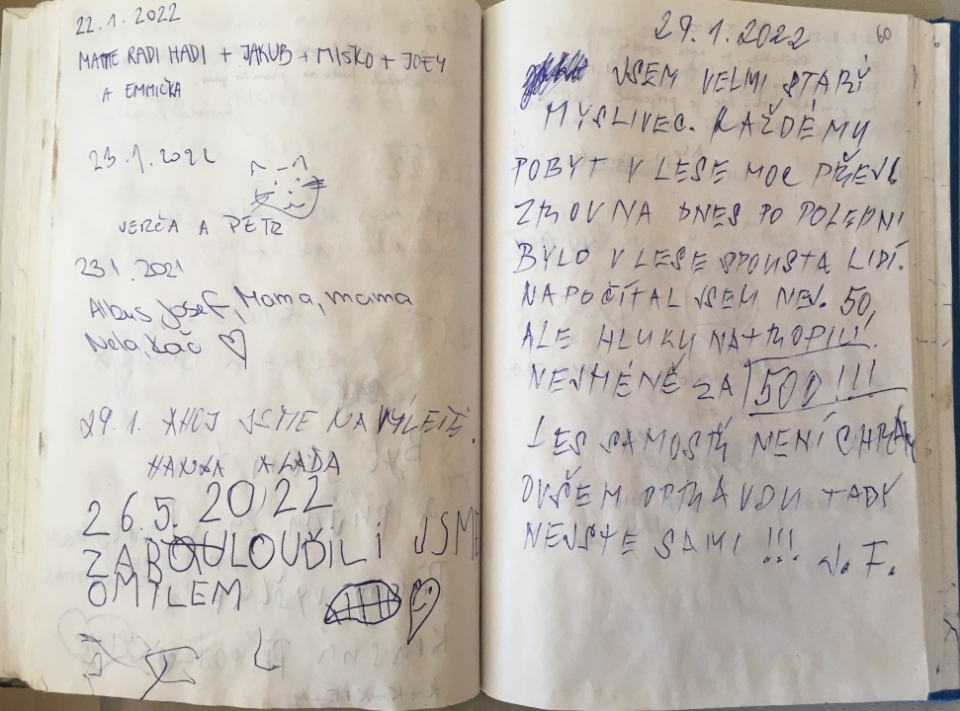 22.1.2022
MATE RADI HADI + JAKUB + MIŠKO + JOEY
A EMMIČKA
23.1.2022
VERČA A PETR
23.1.2021
Albus, Josef, Mama, mama
Nela, Kač
29.1. AHOJ JSME NA VÝLETĚ.
HANKA A LAĎA
26.5.2022
ZABLOUDILI JSME
OMILEM
29.1.2022
60
JSEM VELMI STARÍ
MYSLIVEC. KAŽDÉMU
POBYT V LESE MOC PŘEJI.
ZROVNA DNES PO POLEDNI
BYLO V LESE SPOUSTA LIDÍ.
NAPOČÍTAL JSEM NEJ. 50,
ALE HLUKU NATROPILI
NEJMÉNĚ ZA 500!!!
LES SAMOSTŘ NENÍ CHRÁM
OVŠEM OPRAVDU TADY
NEJSTE SAMI !!! J. F.